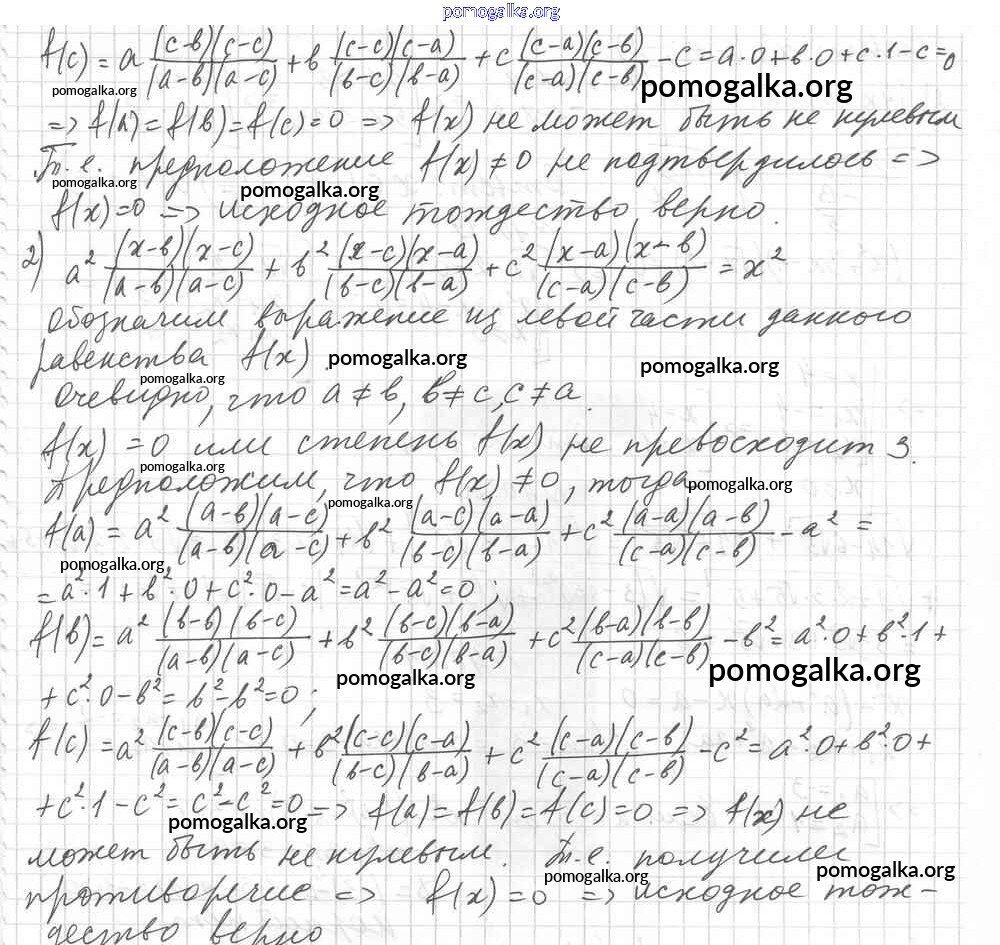 pomogalka.org
f(c) = a (c-в)(c-c)/(a-в)(a-c) + в (c-c)(c-a)/(в-c)(в-a) + c (c-a)(c-в)/(c-a)(c-в) - c = a·0+в·0+c·1-c=0
pomogalka.org
pomogalka.org
=> f(a)=f(в)=f(c)=0 => f(x) не может быть не нулевым
т.е. предположение f(x)≠0 не подтвердилось =>
pomogalka.org
pomogalka.org
f(x)=0 => исходное тождество верно.
2) a² (x-в)(x-c)/(a-в)(a-c) + в² (x-c)(x-a)/(в-c)(в-a) + c² (x-a)(x-в)/(c-a)(c-в) = x²
Обозначим выражение из левой части данного
равенства f(x).
pomogalka.org
pomogalka.org
pomogalka.org
Очевидно, что a≠в, в≠c, c≠a.
f(x)=0 или степень f(x) не превосходит 3.
pomogalka.org
Предположим, что f(x)≠0, тогда
pomogalka.org
pomogalka.org
f(a) = a² (a-в)(a-c)/(a-в)(a-c) + в² (a-c)(a-a)/(в-c)(в-a) + c² (a-a)(a-в)/(c-a)(c-в) - a² =
pomogalka.org
= a²·1 + в²·0 + c²·0 - a² = a² - a² = 0;
f(в) = a² (в-в)(в-c)/(a-в)(a-c) + в² (в-c)(в-a)/(в-c)(в-a) + c² (в-a)(в-в)/(c-a)(c-в) - в² = a²·0 + в²·1 +
pomogalka.org
pomogalka.org
+ c²·0 - в² = в² - в² = 0;
f(c) = a² (c-в)(c-c)/(a-в)(a-c) + в² (c-c)(c-a)/(в-c)(в-a) + c² (c-a)(c-в)/(c-a)(c-в) - c² = a²·0 + в²·0 +
+ c²·1 - c² = c² - c² = 0 => f(a)=f(в)=f(c)=0. => f(x) не
pomogalka.org
может быть не нулевым. Т.е. получили
pomogalka.org
pomogalka.org
противоречие => f(x)=0 => исходное тож-
дество верно